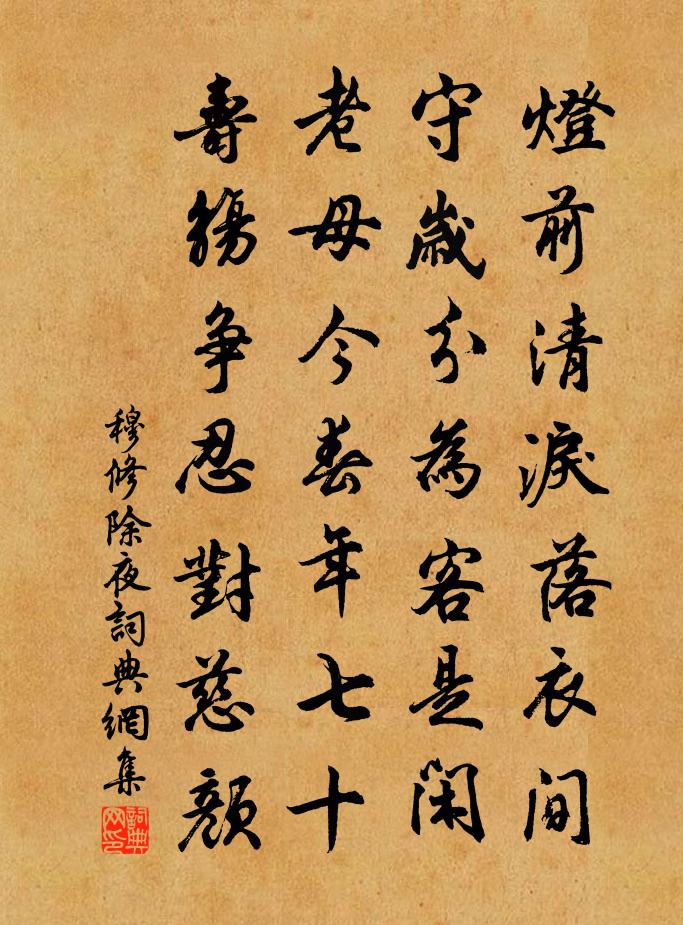 燈前清淚落衣間
守歲分為客是閑
老母今春年七十
壽觴爭忍對慈顏
穆修除夜詞典網集
詞典网印